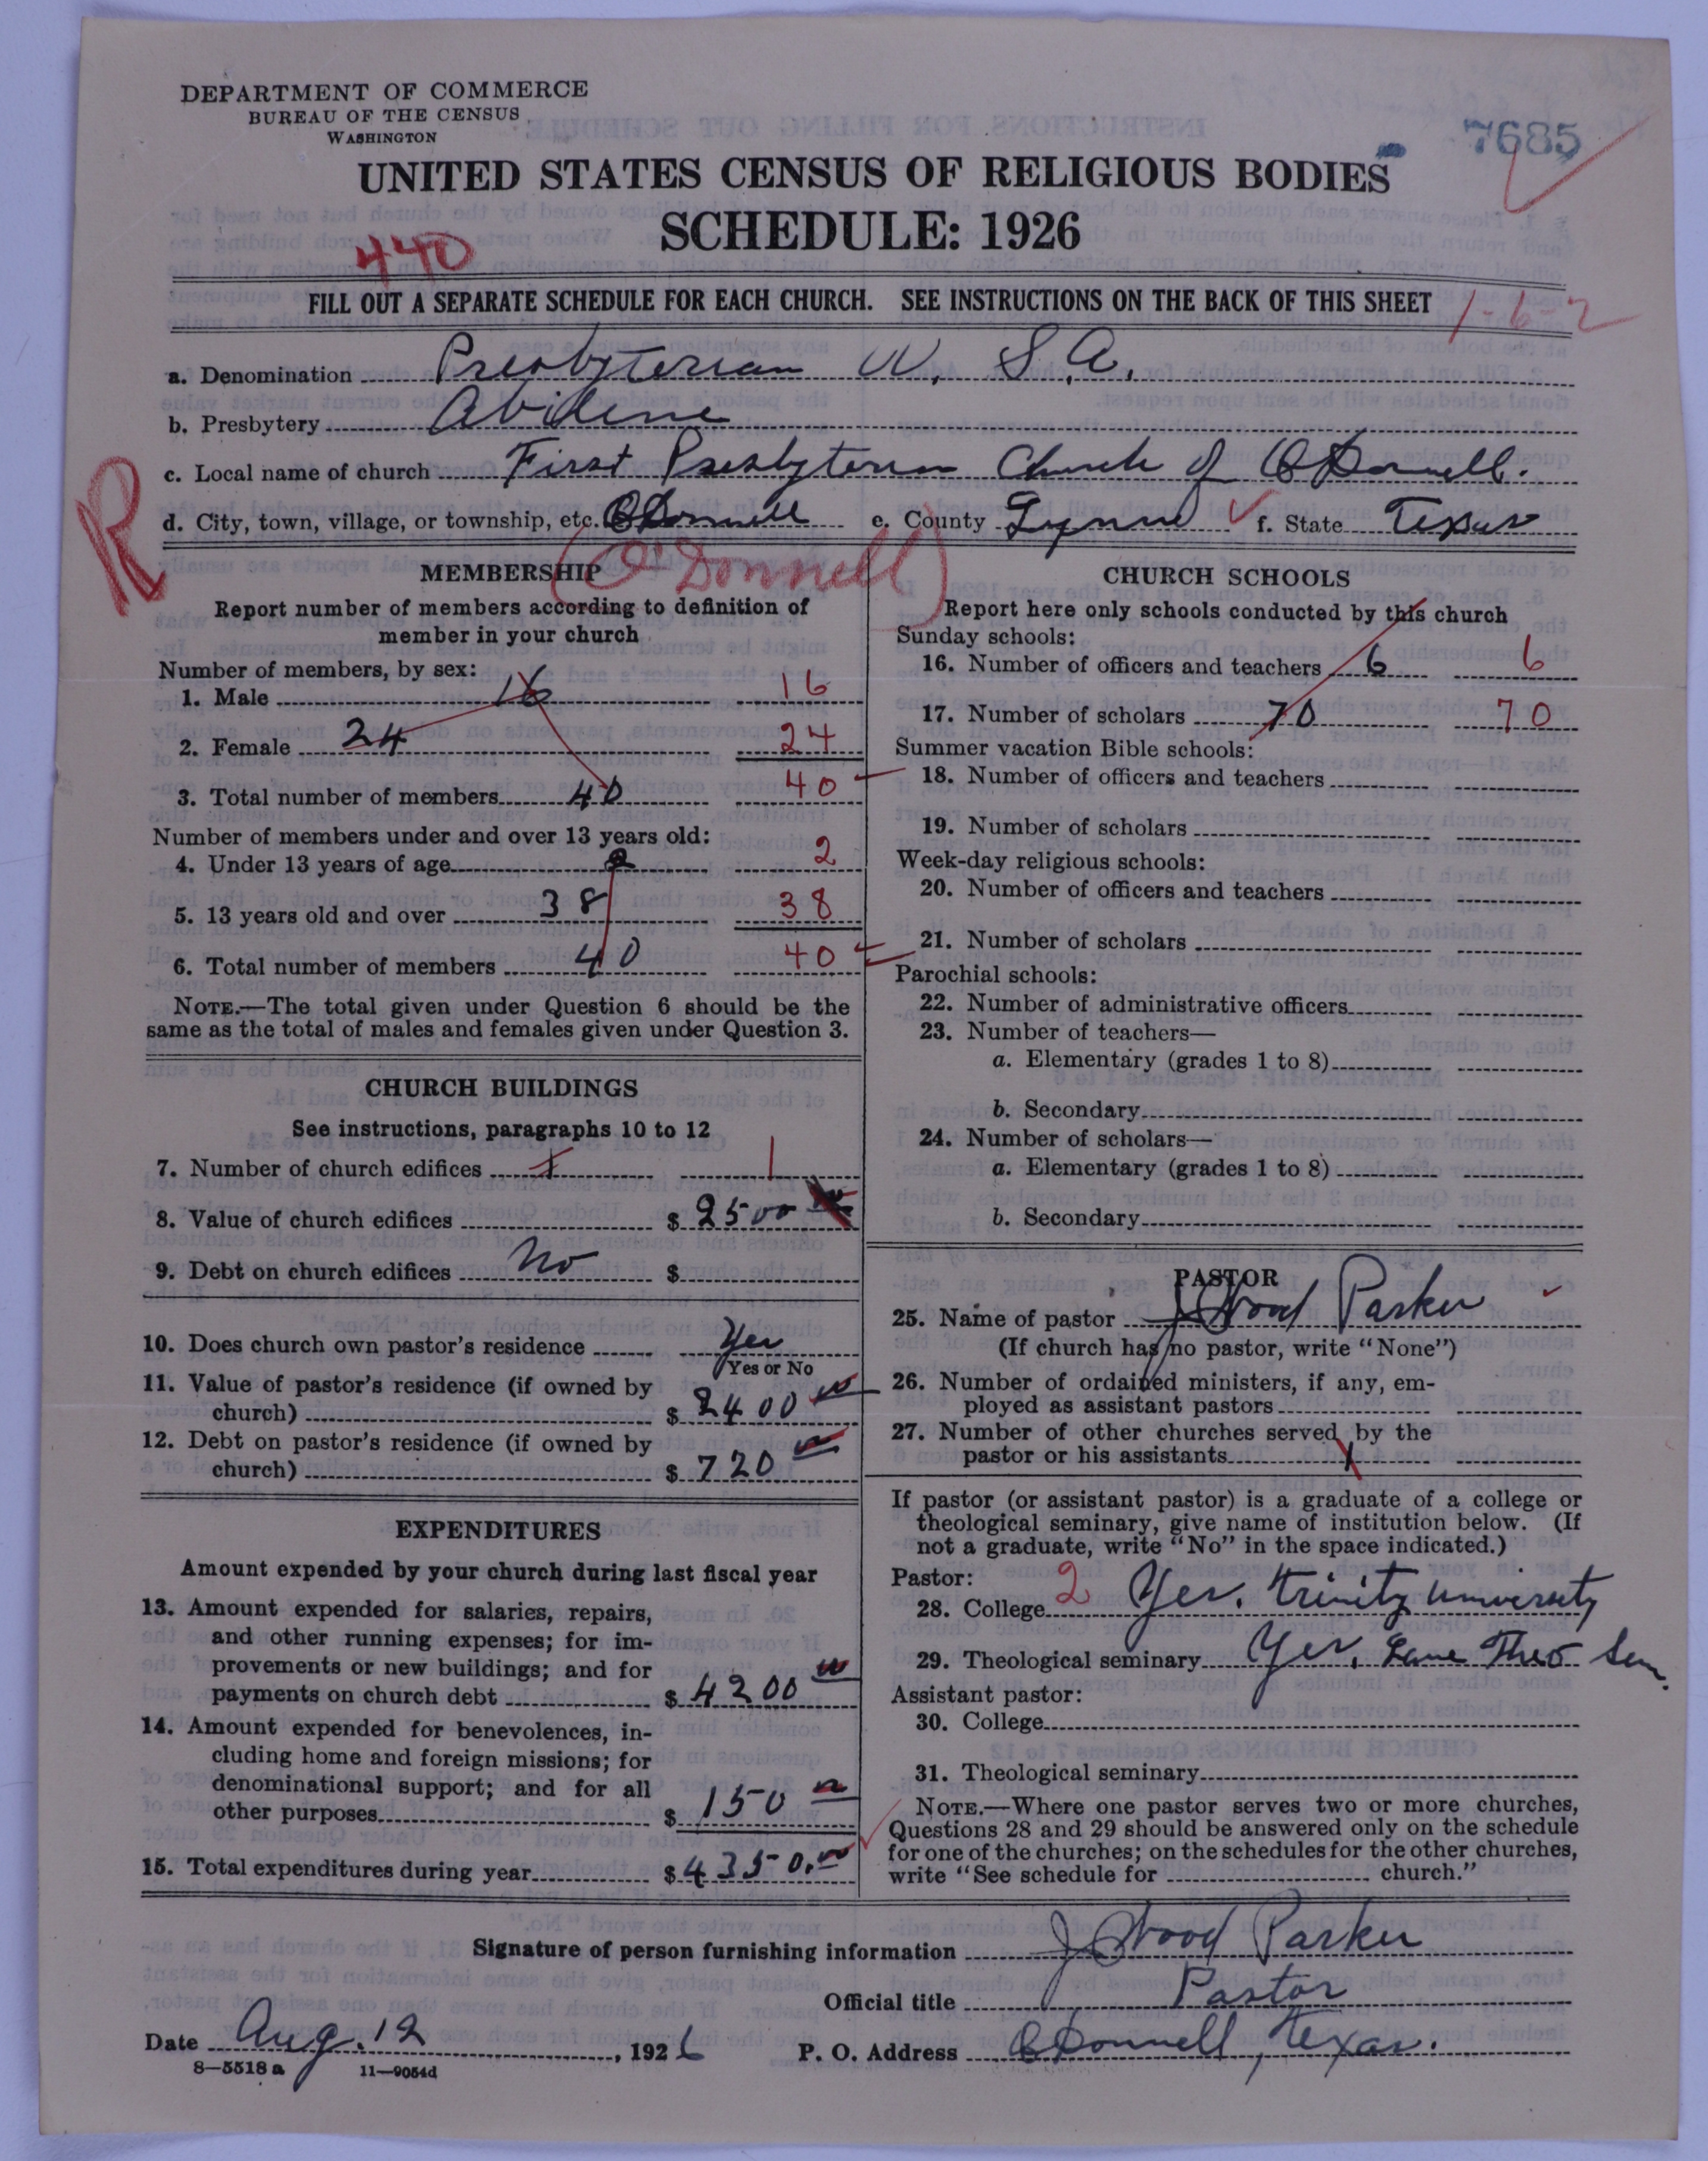 DEPARTMENT OF COMMERCE
BUREAU OF THE CENSUS
WASHINGTON
7685
UNITED STATES CENSUS OF RELIGIOUS BODIES
SCHEDULE: 1926
440
FILL OUT A SEPARATE SCHEDULE FOR EACH CHURCH. SEE INSTRUCTIONS ON THE BACK OF THIS SHEET
1-6-2
a. Denomination Presbyterian U. S. A.
b. Presbytery Abilene
c. Local name of church First Presbyterian Church of O'Donnell.
R
d. City, town, village, or township, etc. O'Donnell e. County Lynn f. State Texas
(O'Donnell)
MEMBERSHIP
Report number of members according to definition of
member in your church
Number of members, by sex:
1. Male 16 16
2. Female 24 24
3. Total number of members 40 40
Number of members under and over 13 years old:
4. Under 13 years of age 2 2
5. 13 years old and over 38 38
6. Total number of members 40 40
NOTE.—The total given under Question 6 should be the
same as the total of males and females given under Question 3.
CHURCH BUILDINGS
See instructions, paragraphs 10 to 12
7. Number of church edifices 1 1
8. Value of church edifices $ 2500 00
9. Debt on church edifices No $
10. Does church own pastor's residence Yes
Yes or No
11. Value of pastor's residence (if owned by
church) $ 2400 00
12. Debt on pastor's residence (if owned by
church) $ 720 00
EXPENDITURES
Amount expended by your church during last fiscal year
13. Amount expended for salaries, repairs,
and other running expenses; for im-
provements or new buildings; and for
payments on church debt $ 4200 00
14. Amount expended for benevolences, in-
cluding home and foreign missions; for
denominational support; and for all
other purposes $ 150 00
15. Total expenditures during year $ 4350.00
CHURCH SCHOOLS
Report here only schools conducted by this church
Sunday schools:
16. Number of officers and teachers 6 6
17. Number of scholars 70 70
Summer vacation Bible schools:
18. Number of officers and teachers
19. Number of scholars
Week-day religious schools:
20. Number of officers and teachers
21. Number of scholars
Parochial schools:
22. Number of administrative officers
23. Number of teachers—
a. Elementary (grades 1 to 8)
b. Secondary
24. Number of scholars—
a. Elementary (grades 1 to 8)
b. Secondary
PASTOR
25. Name of pastor J Wood Parker
(If church has no pastor, write "None")
26. Number of ordained ministers, if any, em-
ployed as assistant pastors
27. Number of other churches served by the
pastor or his assistants
If pastor (or assistant pastor) is a graduate of a college or
theological seminary, give name of institution below. (If
not a graduate, write "No" in the space indicated.)
Pastor:
28. College 2 Yes. Trinity University
29. Theological seminary Yes. Lane Theo Sem.
Assistant pastor:
30. College
31. Theological seminary
NOTE.—Where one pastor serves two or more churches,
Questions 28 and 29 should be answered only on the schedule
for one of the churches; on the schedules for the other churches,
write "See schedule for church."
Signature of person furnishing information J Wood Parker
Official title Pastor
Date Aug. 12, 1926 P. O. Address O'Donnell, Texas.
8—5518 a 11—9054d